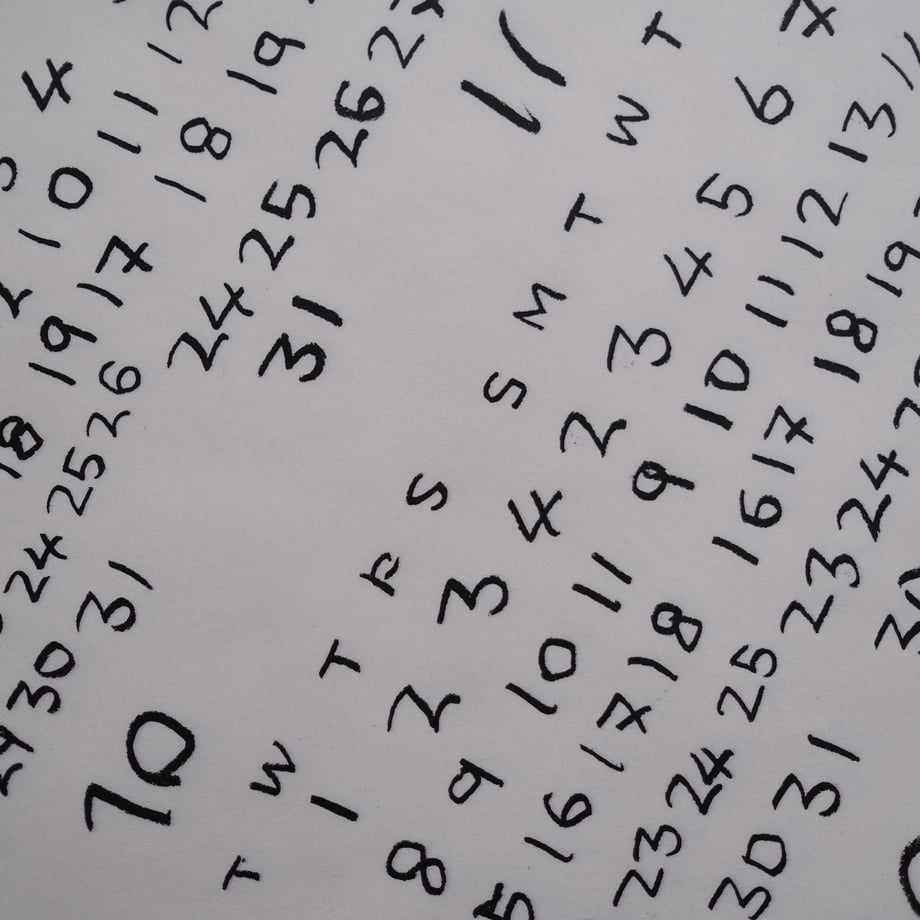 4
10 11 12
17 18 19
24 25 26
31
18 19
24 25 26
30 31
11
S M T W T
2 3 4 5 6 7
9 10 11 12 13
16 17 18 19
23 24
30
10
T W T F S
1 2 3 4
8 9 10 11
16 17 18
23 24 25
30 31